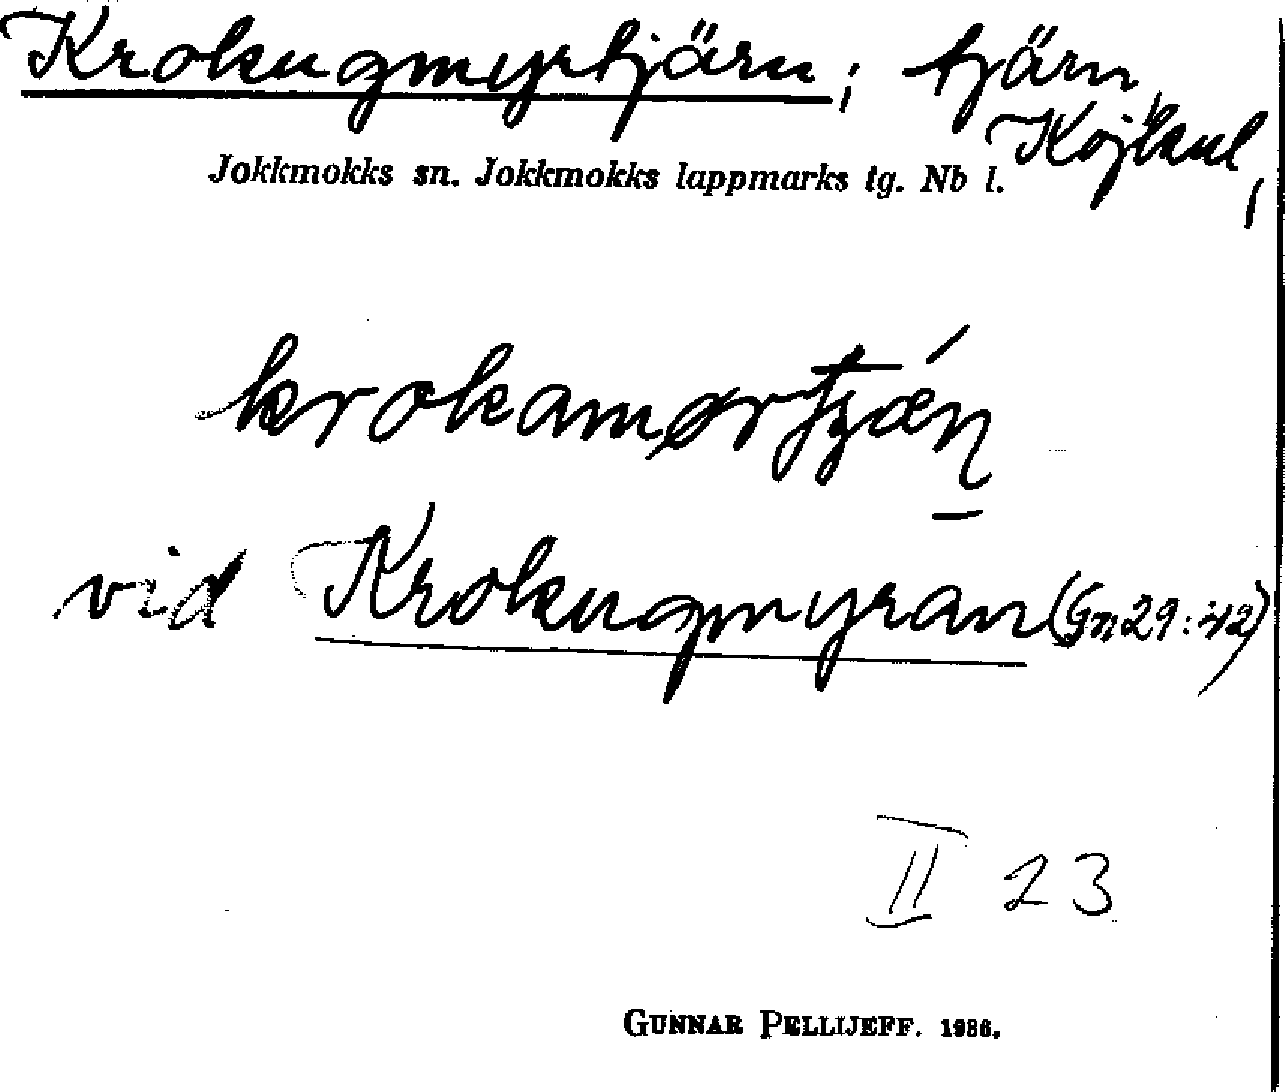 Krokugmyrtjärn; tjärn,
Kåjkul,
Jokkmokks sn. Jokkmokks lappmarks tg. Nb l.
vid Krokugmyran (Gm 29:42)
II 23
GUNNAR PELLIJEFF. 1986.